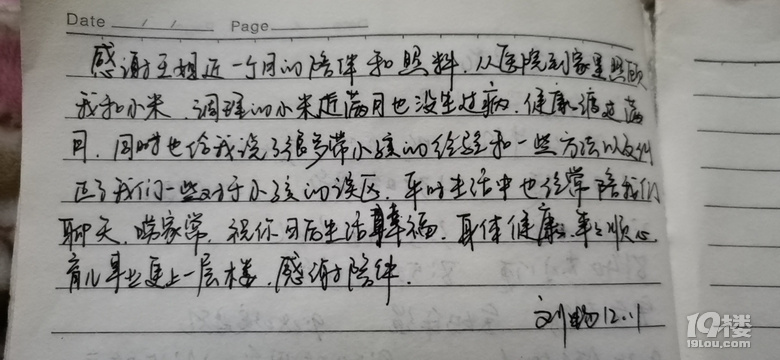 Date / / Page
感谢王姐近一个月的陪伴和照料,从医院到家里照顾
我和小米,调理的小米近满月也没生过病,健康度过满
月,同时也给我说了很多带小孩的经验和一些方法以及纠
正了我们一些对于小孩的误区,平时生活中也经常陪我们
聊天,唠家常,祝你日后生活幸福,身体健康,事事顺心
育儿事业更上一层楼,感谢陪伴.
刘 12.11
19楼
19lou.com